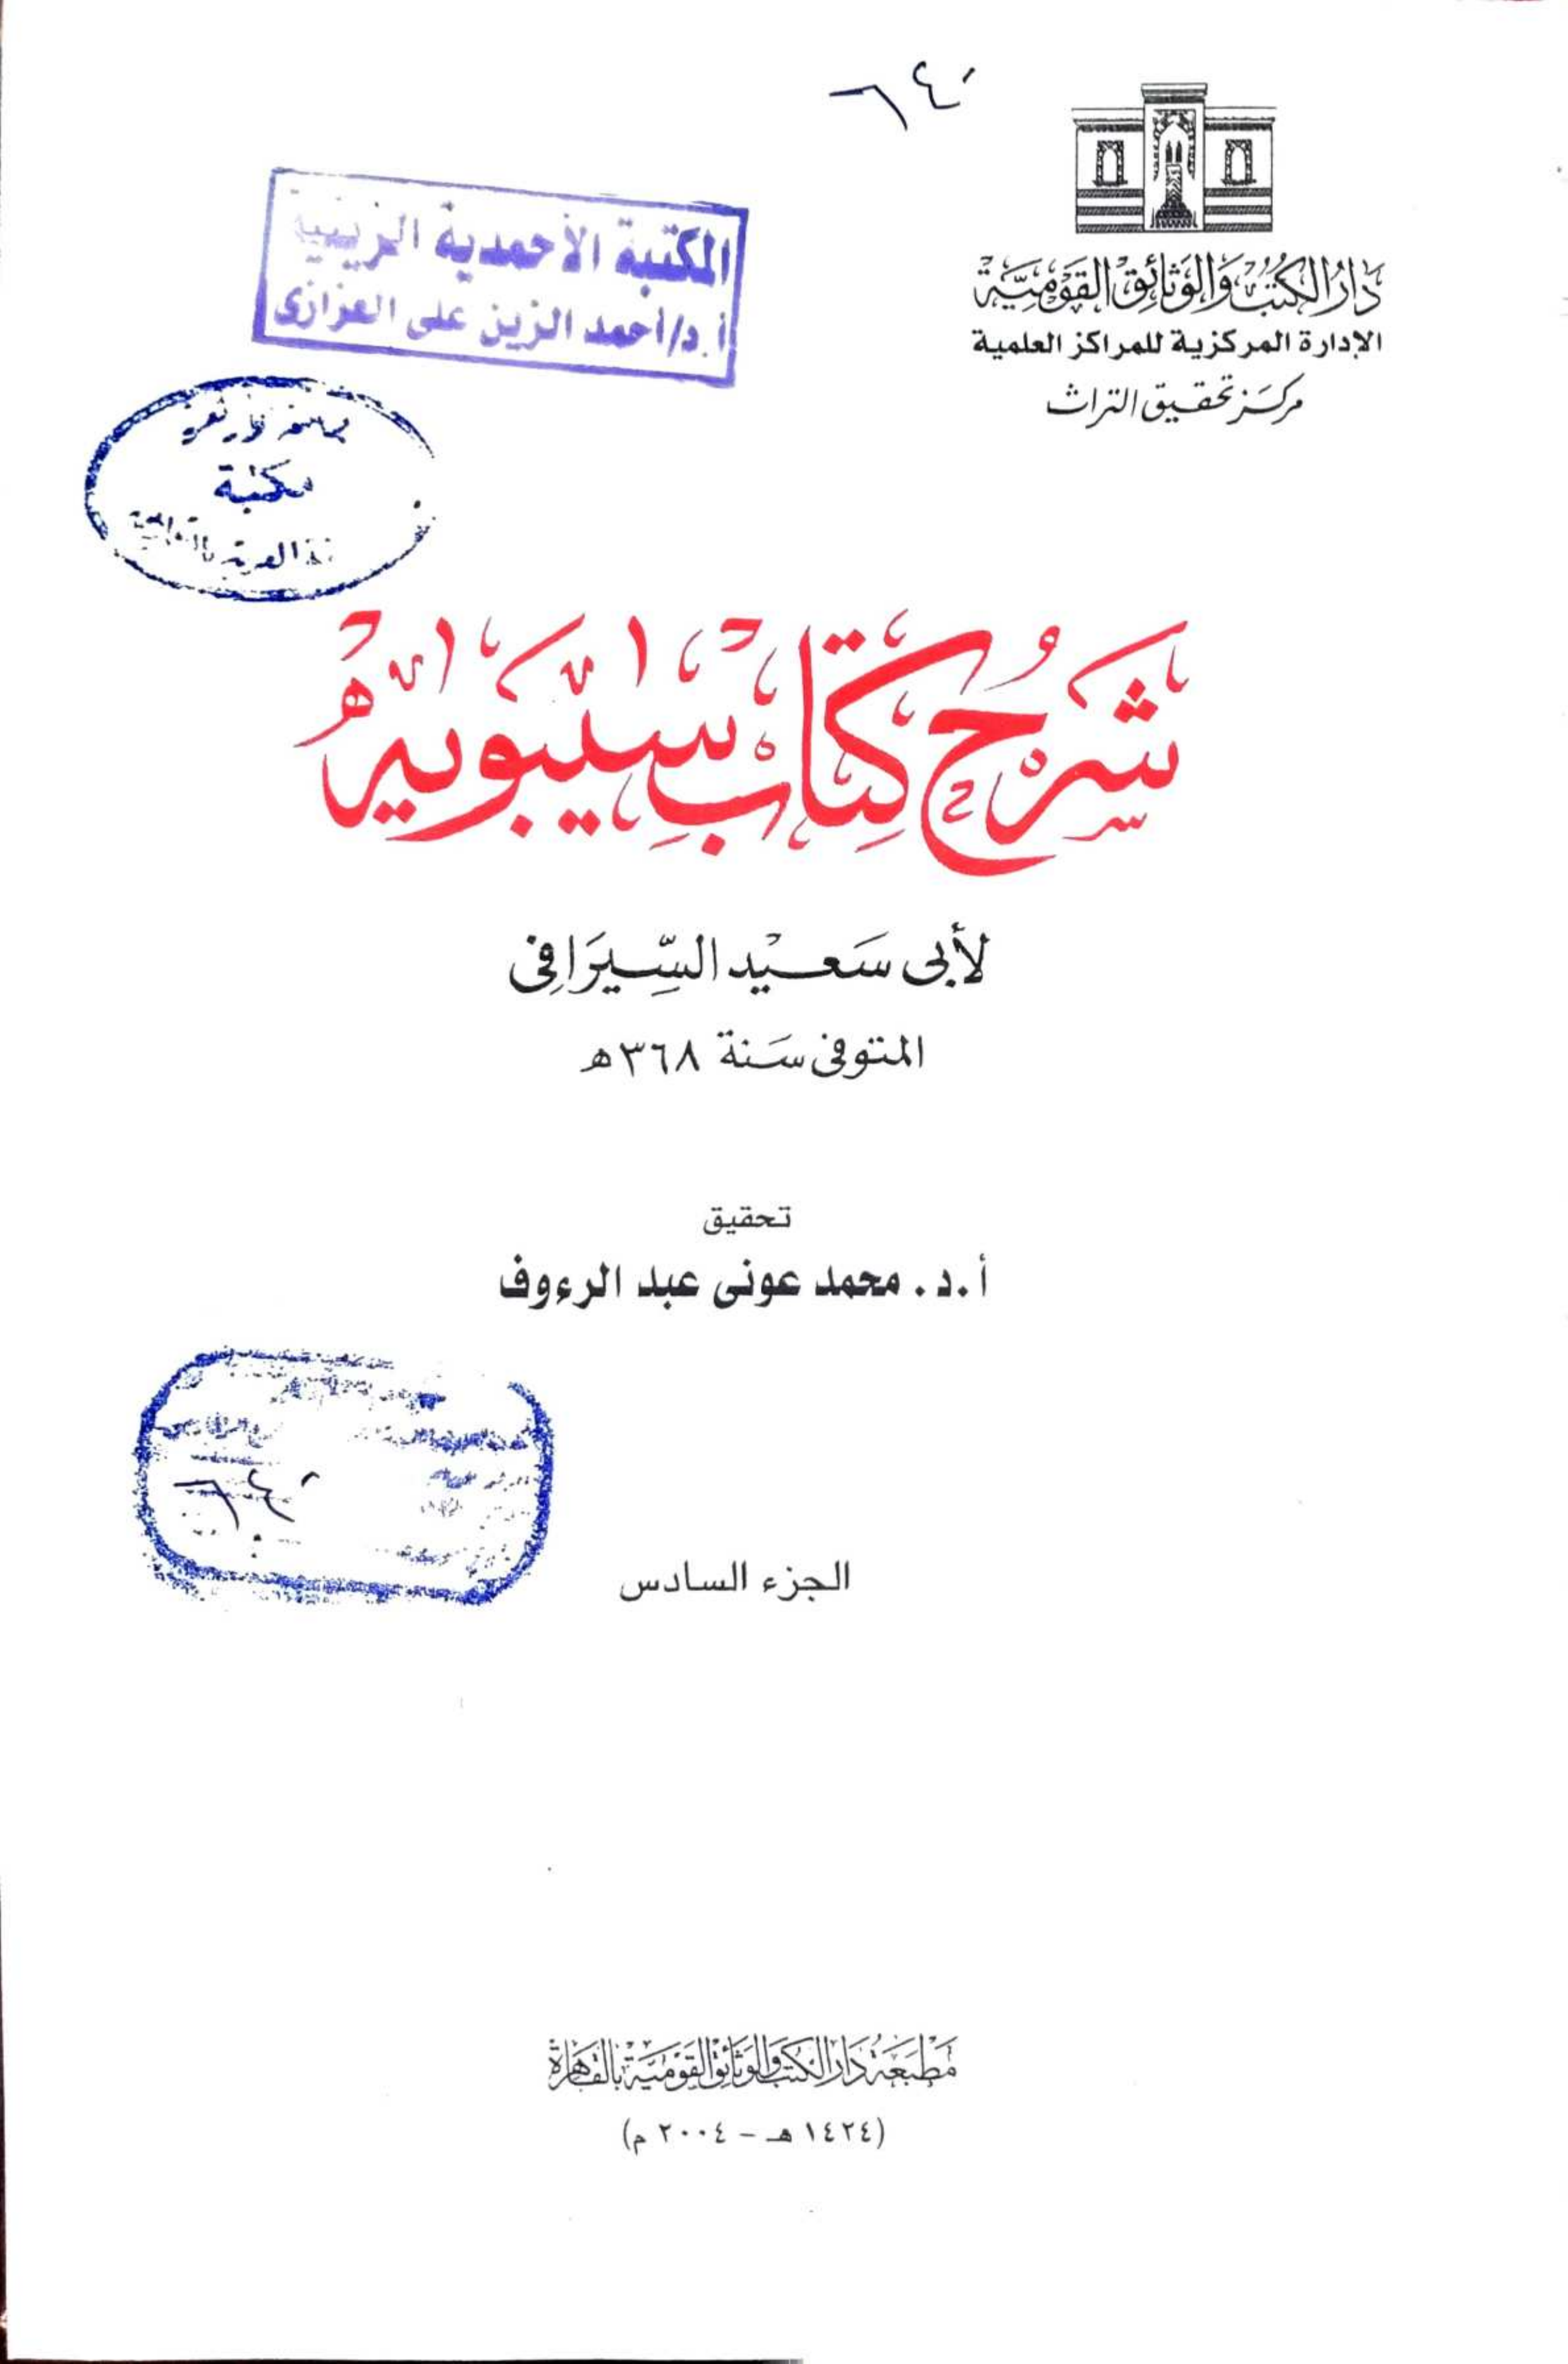 ٦٤٠
دَارُ الكُتُبْ وَالوَثَائِقْ القَوْمِيَّة
الإدارة المركزية للمراكز العلمية
مركَز تحقيق التراث
المكتبة الأحمدية الزينية
أ.د/أحمد الزين على العزازى
مكتبة
شَرْحُ كِتَابِ سِيبَوَيْهِ
لأبى سَعيْد السِّيرَافِى
المتوفى سَنة ٣٦٨ھ
تحقيق
أ.د. محمد عونى عبد الرءوف
٦٤٠
الجزء السادس
مَطبَعَةُ دَارُ الكتُبْ وَالوَثَائِقْ القَوْمِيَّةْ بالقَاهِرَة
(١٤٢٤ هـ - ٢٠٠٤ م)